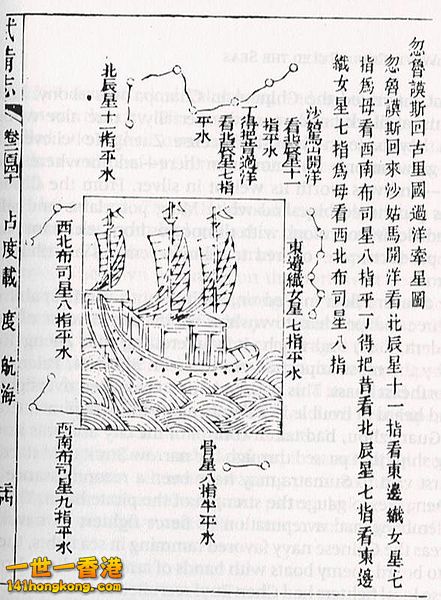 忽魯謨斯回古里國過洋牽星圖
忽魯謨斯回來沙姑馬開洋看北辰星十 指看東邊織女星七
指爲母看西南布司星八指平丁得把昔看北辰星七指看東邊
織女星七指爲母看西北布司星八指
沙姑馬開洋
看北辰星十
指平水
丁得把昔過洋
看北辰星七指
平水
北辰星十一指平水
東邊織女星七指平水
西北布司星八指平水
骨星八指半平水
西南布司星九指平水
武備志 卷二百四十 占度載 度 航海
一世一香港
141hongkong.com